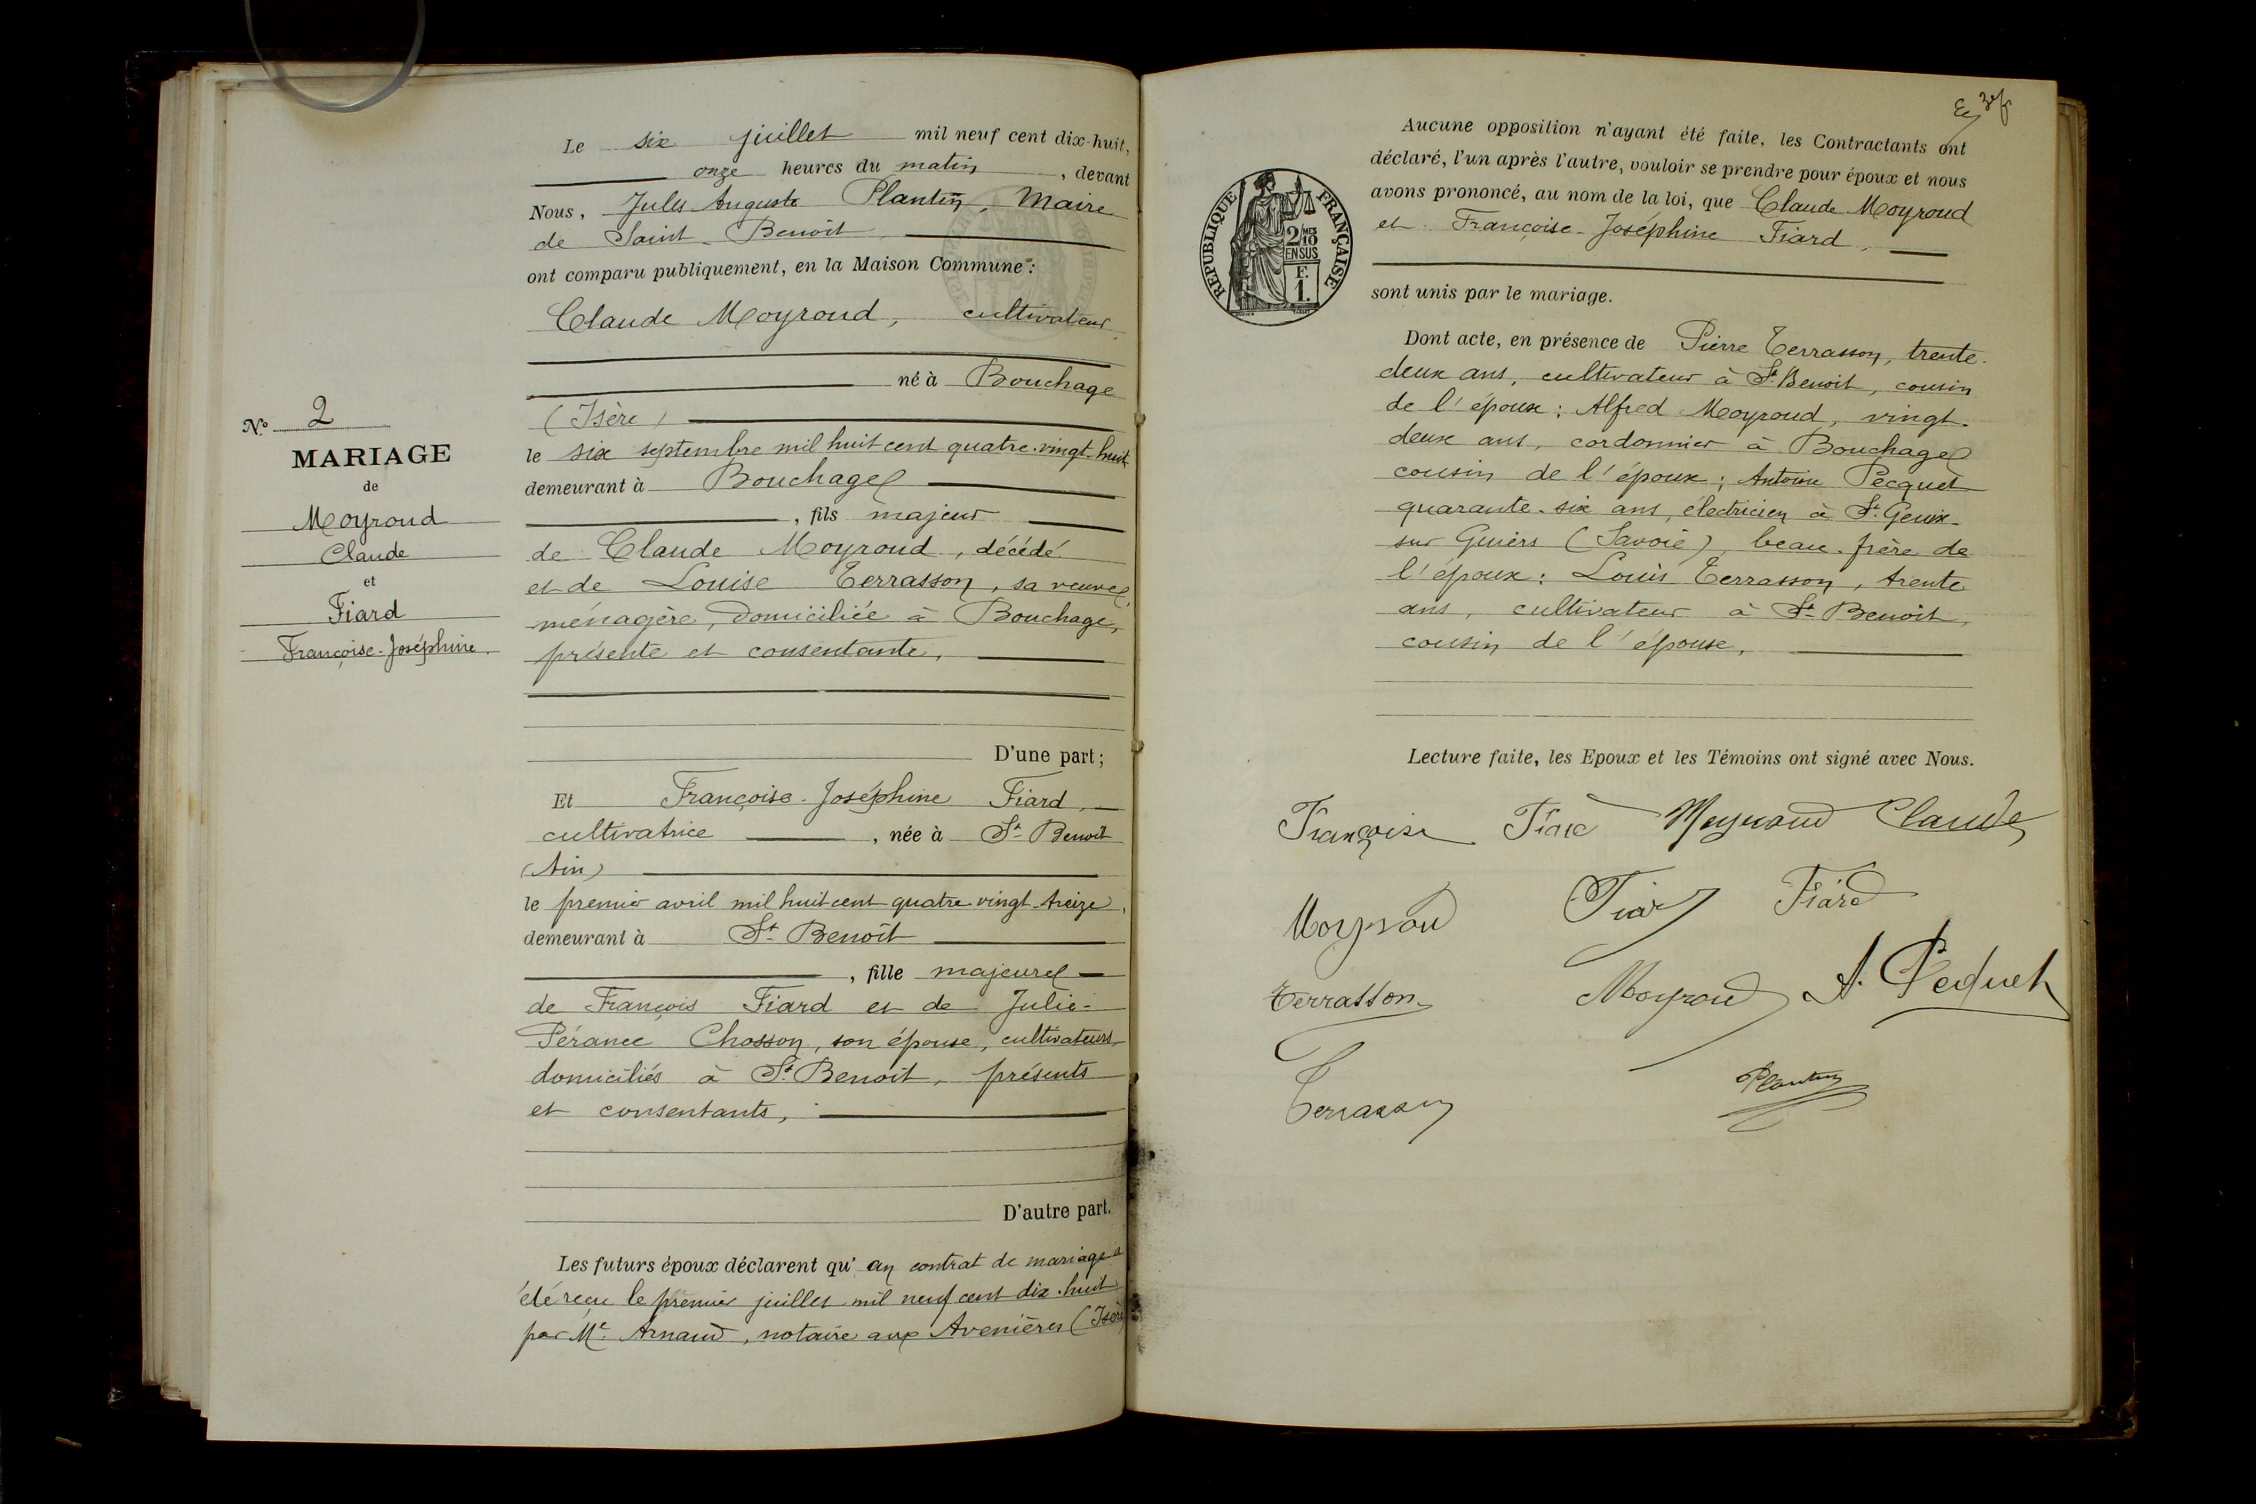 Le six juillet mil neuf cent dix-huit,
onze heures du matin, devant
Nous, Jules Auguste Plantin, Maire
de Saint-Benoît
ont comparu publiquement, en la Maison Commune :
Claude Moyroud, cultivateur
né à Bouchage
(Isère)
le six septembre mil huit cent quatre-vingt-huit
demeurant à Bouchage
, fils majeur
de Claude Moyroud, décédé
et de Louise Terrasson, sa veuve,
ménagère, domiciliée à Bouchage,
présente et consentante,
D'une part;
Nº 2
MARIAGE
de
Moyroud
Claude
et
Fiard
Françoise-Joséphine.
Et Françoise-Joséphine Fiard,
cultivatrice, née à St Benoit
(Ain)
le premier avril mil huit cent quatre vingt treize,
demeurant à St Benoît
, fille majeure
de François Fiard et de Julie-
Pérance Chosson, son épouse, cultivateurs
domiciliés à St Benoit, présents
et consentants,
D'autre part.
Les futurs époux déclarent qu'un contrat de mariage a
été reçu le premier juillet mil neuf cent dix-huit
par Me Arnaud, notaire aux Avenières (Isère)
Aucune opposition n'ayant été faite, les Contractants ont
déclaré, l'un après l'autre, vouloir se prendre pour époux et nous
avons prononcé, au nom de la loi, que Claude Moyroud
et Françoise-Joséphine Fiard,
sont unis par le mariage.
RÉPUBLIQUE FRANÇAISE
2/10
EN SUS
F.
1.
Dont acte, en présence de Pierre Terrasson, trente-
deux ans, cultivateur à St Benoit, cousin
de l'époux; Alfred Moyroud, vingt-
deux ans, cordonnier à Bouchage
cousin de l'époux; Antoine Pecquet
quarante-six ans, électricien à St Genix-
sur Guiers (Savoie), beau-frère de
l'époux; Louis Terrasson, trente
ans, cultivateur à St Benoit,
cousin de l'épouse,
Lecture faite, les Epoux et les Témoins ont signé avec Nous.
Françoise Fiard Moyroud Claude
Moyroud Fiard Fiard
Terrasson Moyroud A. Pecquet
Terrasson Plantin